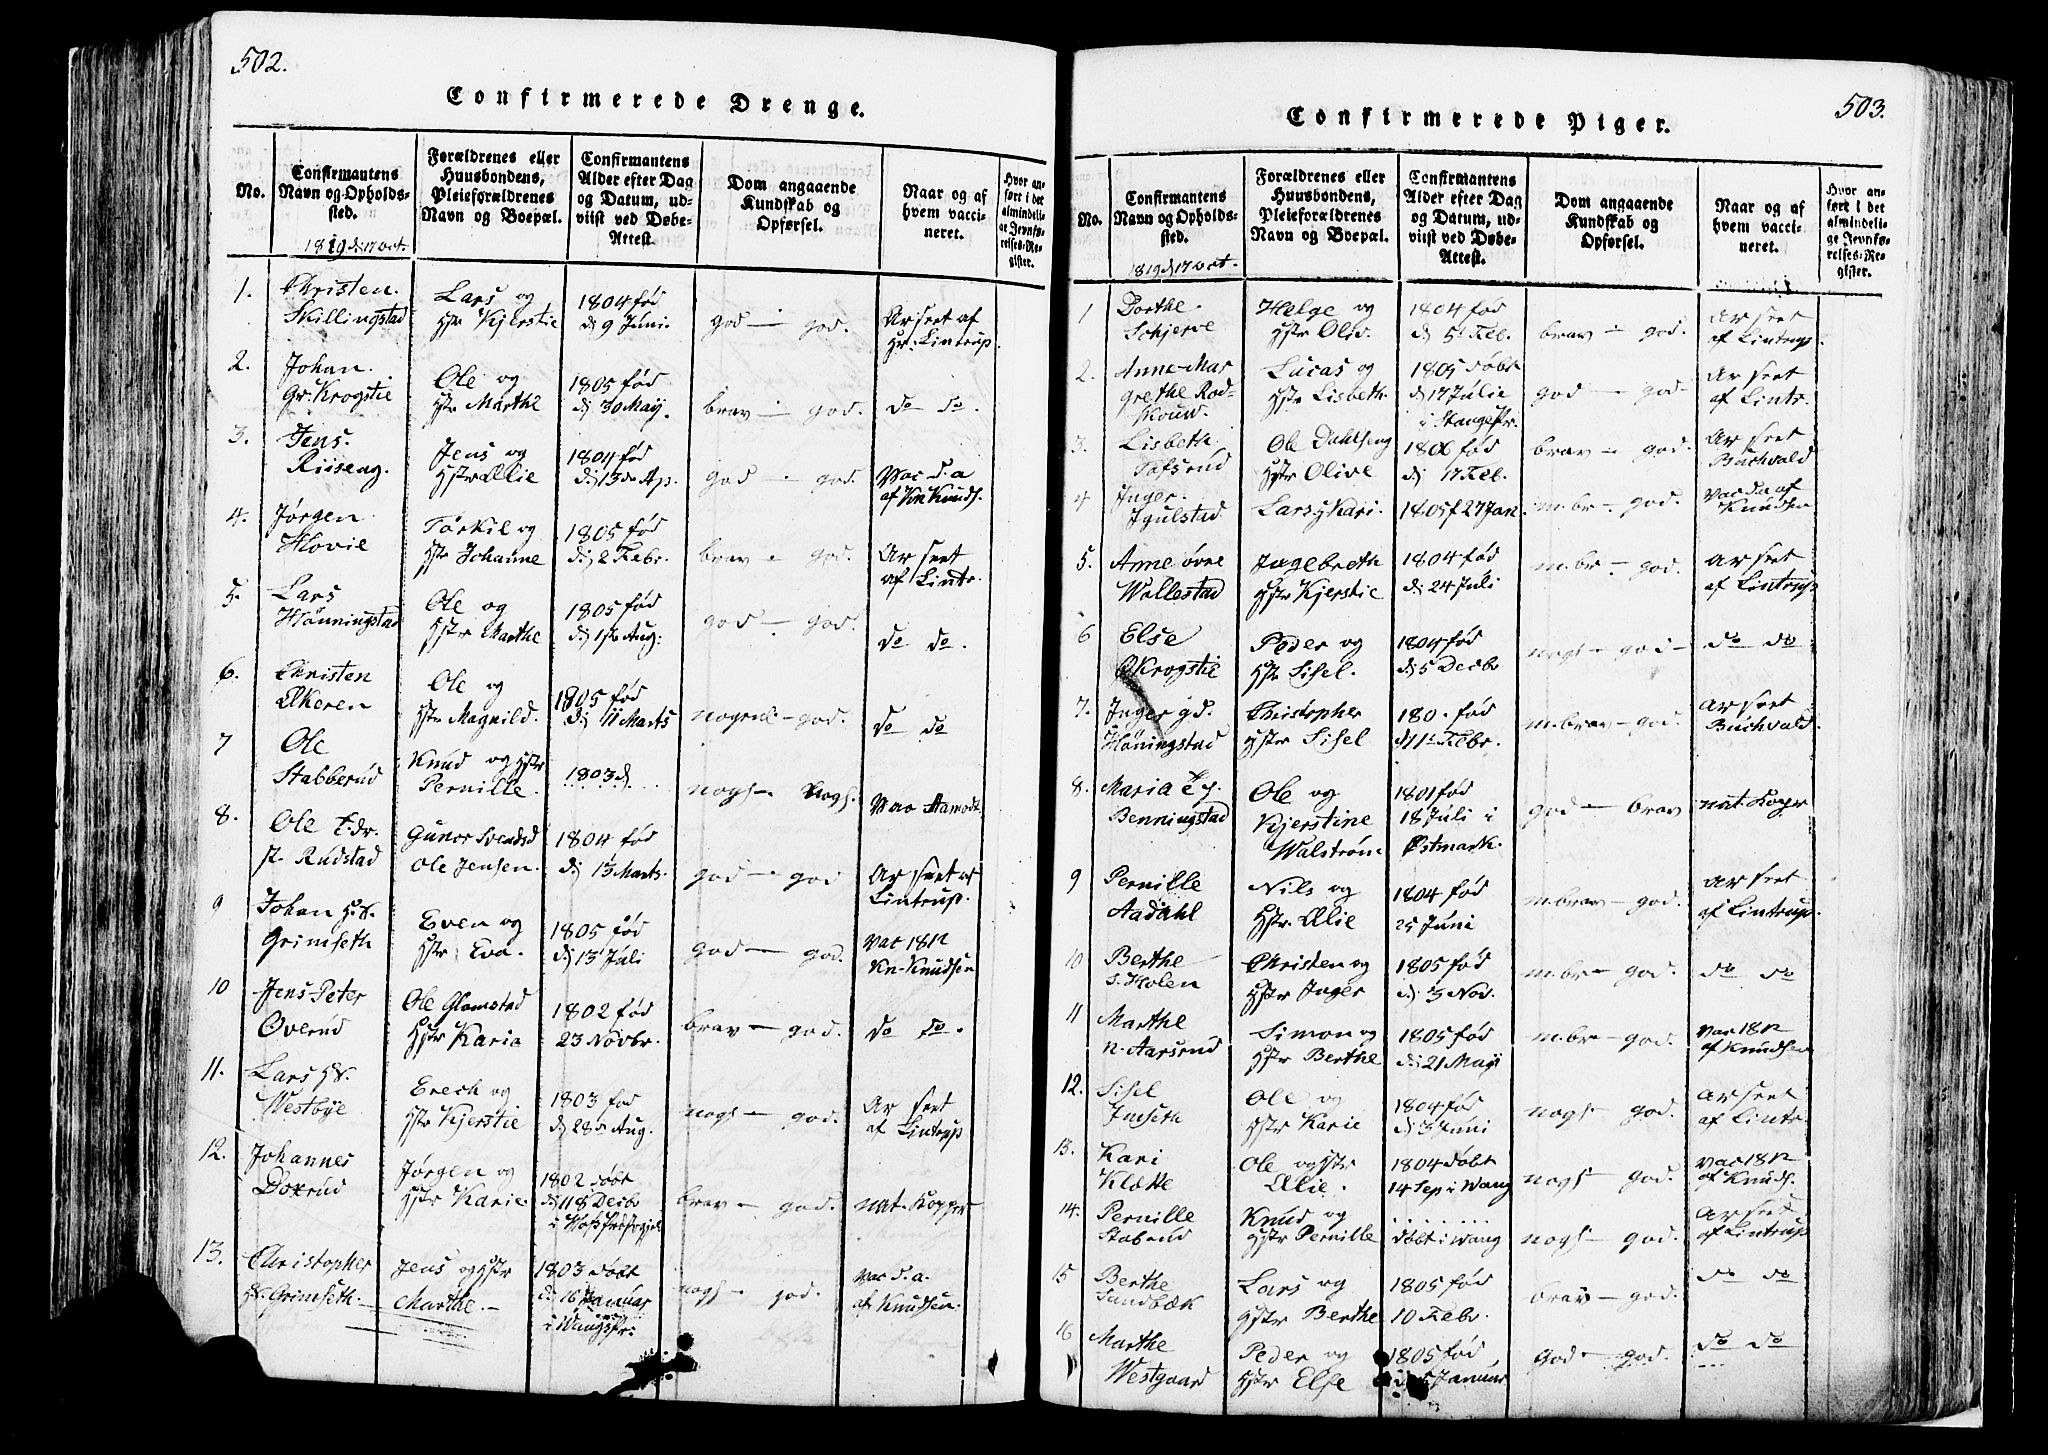 502.
Confirmerede Drenge.
No.
Confirmantens
Navn og Opholds-
sted.
1819 d 17 oct.
Forældrenes eller
Huusbondens,
Pleieforældrenes
Navn og Boepæl.
Confirmantens
Alder efter Dag
og Datum, ud-
viist ved Døbe-
Attest.
Dom angaaende
Kundskab og
Opførsel.
Naar og af
hvem vacci-
neret.
Hvor an-
ført i det
almindeli-
ge Jevnfø-
relses-Re-
gister.
1. Christen Skillingstad
Lars og Hstr Kjerstie
1804 fød d 9 Juni.
god - god.
Ar seet af Hr. Lintrup.
2. Johan Gr. Krogstie
Ole og Hstr Marthe
1805 fød d 30 Maij.
brav - god.
do do.
3. Jens Riiseng.
Jens og Hstr Ælie
1804 fød d 13de Ap.
god - god.
Vac d. a af Kn Knuds.
4. Jørgen Hovie
Torkil og Hstr Johanne
1805 fød d 2 Febr.
brav - god.
Ar seet af Lintr.
5. Lars Hönningstad
Ole og Hstr Marthe
1805 fød d 1ste Aug:
god - god.
do do.
6. Christen Økeren
Ole og Hstr Magnild.
1805 fød d 11 Marts
nogenl - god.
do do
7 Ole Stabberud
Knud og Hstr Pernille.
1803 d ....
nogs - nogs.
Vac Hamodt
8. Ole E.dr. Rudstad
Gunor Svendsd Ole Jensen.
1804 fød d 13 Marts.
god - god
Ar seet af Lintrup.
9 Johan Grimseth
Even og Hstr Eva.
1805 fød d 13 Juli
god - god.
Vac 1812 Kn- Knudsen
10 Jens Peter Overud
Ole Glomstad Hstr Karia
1802 fød 23 Novbr.
brav - god.
do do.
11. Lars Westbye
Erech og Hstr Kjerstie
1803 fød d 28de Aug.
nogs - god.
Ar seet af Lintrup
12. Johannes Doxrud
Jørgen og Hstr Karie
1802 døbt d 18 Decbr i
brav - god.
nat. Kopper
13. Christopher Grimseth.
Jens og Hstr Marthe.
1803 døbt d 16 Januar i Wangs Pr:
nogs - god.
Vac d. a. af Knudsen.
503.
Confirmerede Piger.
No.
Confirmantens
Navn og Opholds-
sted.
1819 d 17 oct.
Forældrenes eller
Huusbondens,
Pleieforældrenes
Navn og Boepæl.
Confirmantens
Alder efter Dag
og Datum, ud-
viist ved Døbe-
Attest.
Dom angaaende
Kundskab og
Opførsel.
Naar og af
hvem vacci-
neret.
Hvor an-
ført i det
almindeli-
ge Jevnfø-
relses-Re-
gister.
1 Dorthe Schjerve
Helge og Hstr Oliv.
1804 fød d 5t Feb.
brav - god.
Ar seet af Lintrup.
2. Anne Mar grethe Rod- skouw.
Lucas og Hstr Lisbeth.
1805 døbt d 17 Julie i Stange Pr.
god - god
Ar seet af Lintr.
3. Lisbeth Tofsrud
Ole Dahlseng Hstr Olive
1806 fød d 17 Feb.
brav - god.
Ar seet Buchvald
4 Inger Igulstad
Lars H Kari.
1805 f 27 Jan.
m.br - god.
Vac da af Knudsen
5. Anne øvre Wollestad
Ingebreth Hstr Kjerstie
1804 fød d 24 Juli
m.br - god.
Ar seet af Lintrup
6 Else Krogstie
Peder og Hstr Sisel.
1804 fød d 5 Decbr
nogs - god -
do do
7. Inger gd. Höningstad
Christopher Hstr Sisel
180. fød d 11t Febr.
m.brav - god.
Ar seet Buchvald.
8. Maria E.g. Benningstad
Ole og Kjerstine Walstrøm
1801 fød 18 Juli i Østmark.
god - brav
nat. Kopr
9 Pernille Aadahl
Nils og Hstr. Ælie
1804 fød 25 Juni
m.brav - god.
Ar seet af Lintrup.
10 Berthe s. Holen
Christen og Hstr Inger
1805 fød d 3 Nov.
m.br - god.
do do
11 Marthe n. Aarsrud
Simon og Hstr Berthe
1805 fød d 21 Maij
m.br - god.
Vac 1812 af Knudsen
12. Sisel Imseth
Ole og Hstr Karie
1804 fød d 3 Juni
nogs - god.
Ar seet af Lintr.
13. Kari Klække
Ole og Hstr Ælie.
1804 døbt 14 Sep i Wang
nogs - god.
Vac 1812 af Knuds.
14. Pernille Stabrud
Knud og Hstr Pernille
....... døbt i Wang
nogs - god.
Ar seet af Lintrup
15 Berthe Sandbæk
Lars og Hstr Berthe
1805 fød 10 Febr.
brav - god.
do do
16 Marthe Westgaard
Peder og Hstr Else
1805 fød d 5 Januar
god - god.
do do